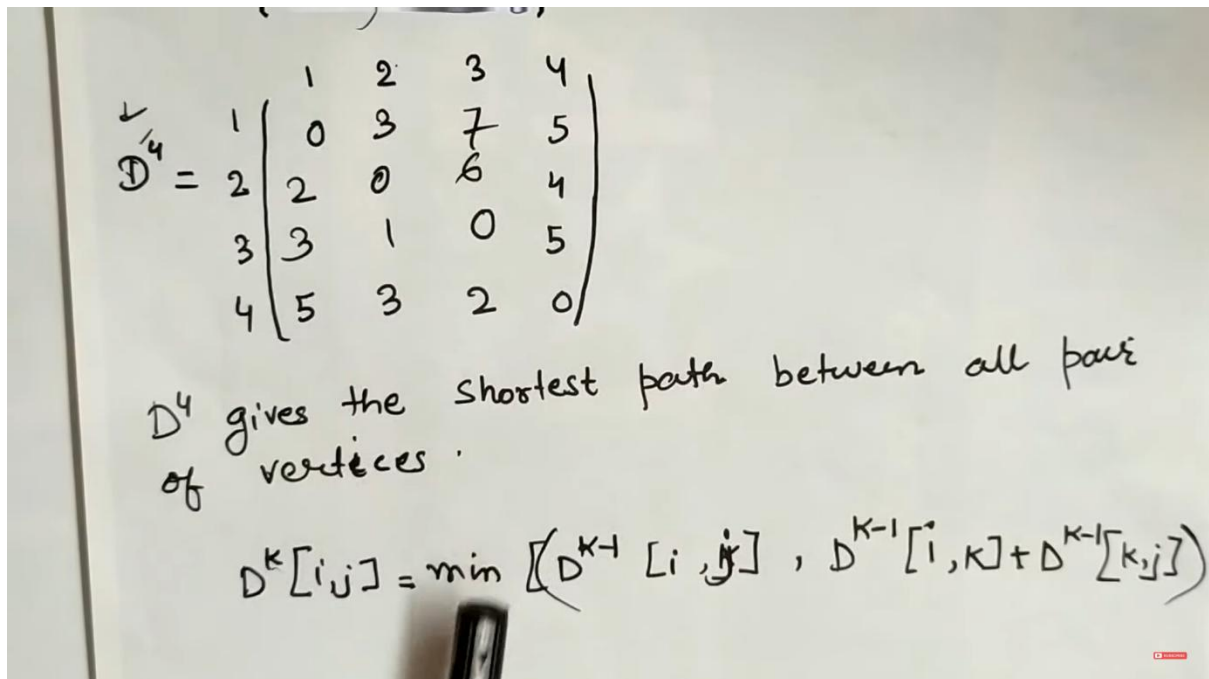 1 2 3 4
1 0 3 7 5
D⁴ = 2 2 0 6 4
3 3 1 0 5
4 5 3 2 0
D⁴ gives the shortest path between all pair
of vertices.
D^K [i,j] = min [(D^K-1 [i,j], D^K-1 [i,K] + D^K-1 [K,j])
SUBSCRIBE